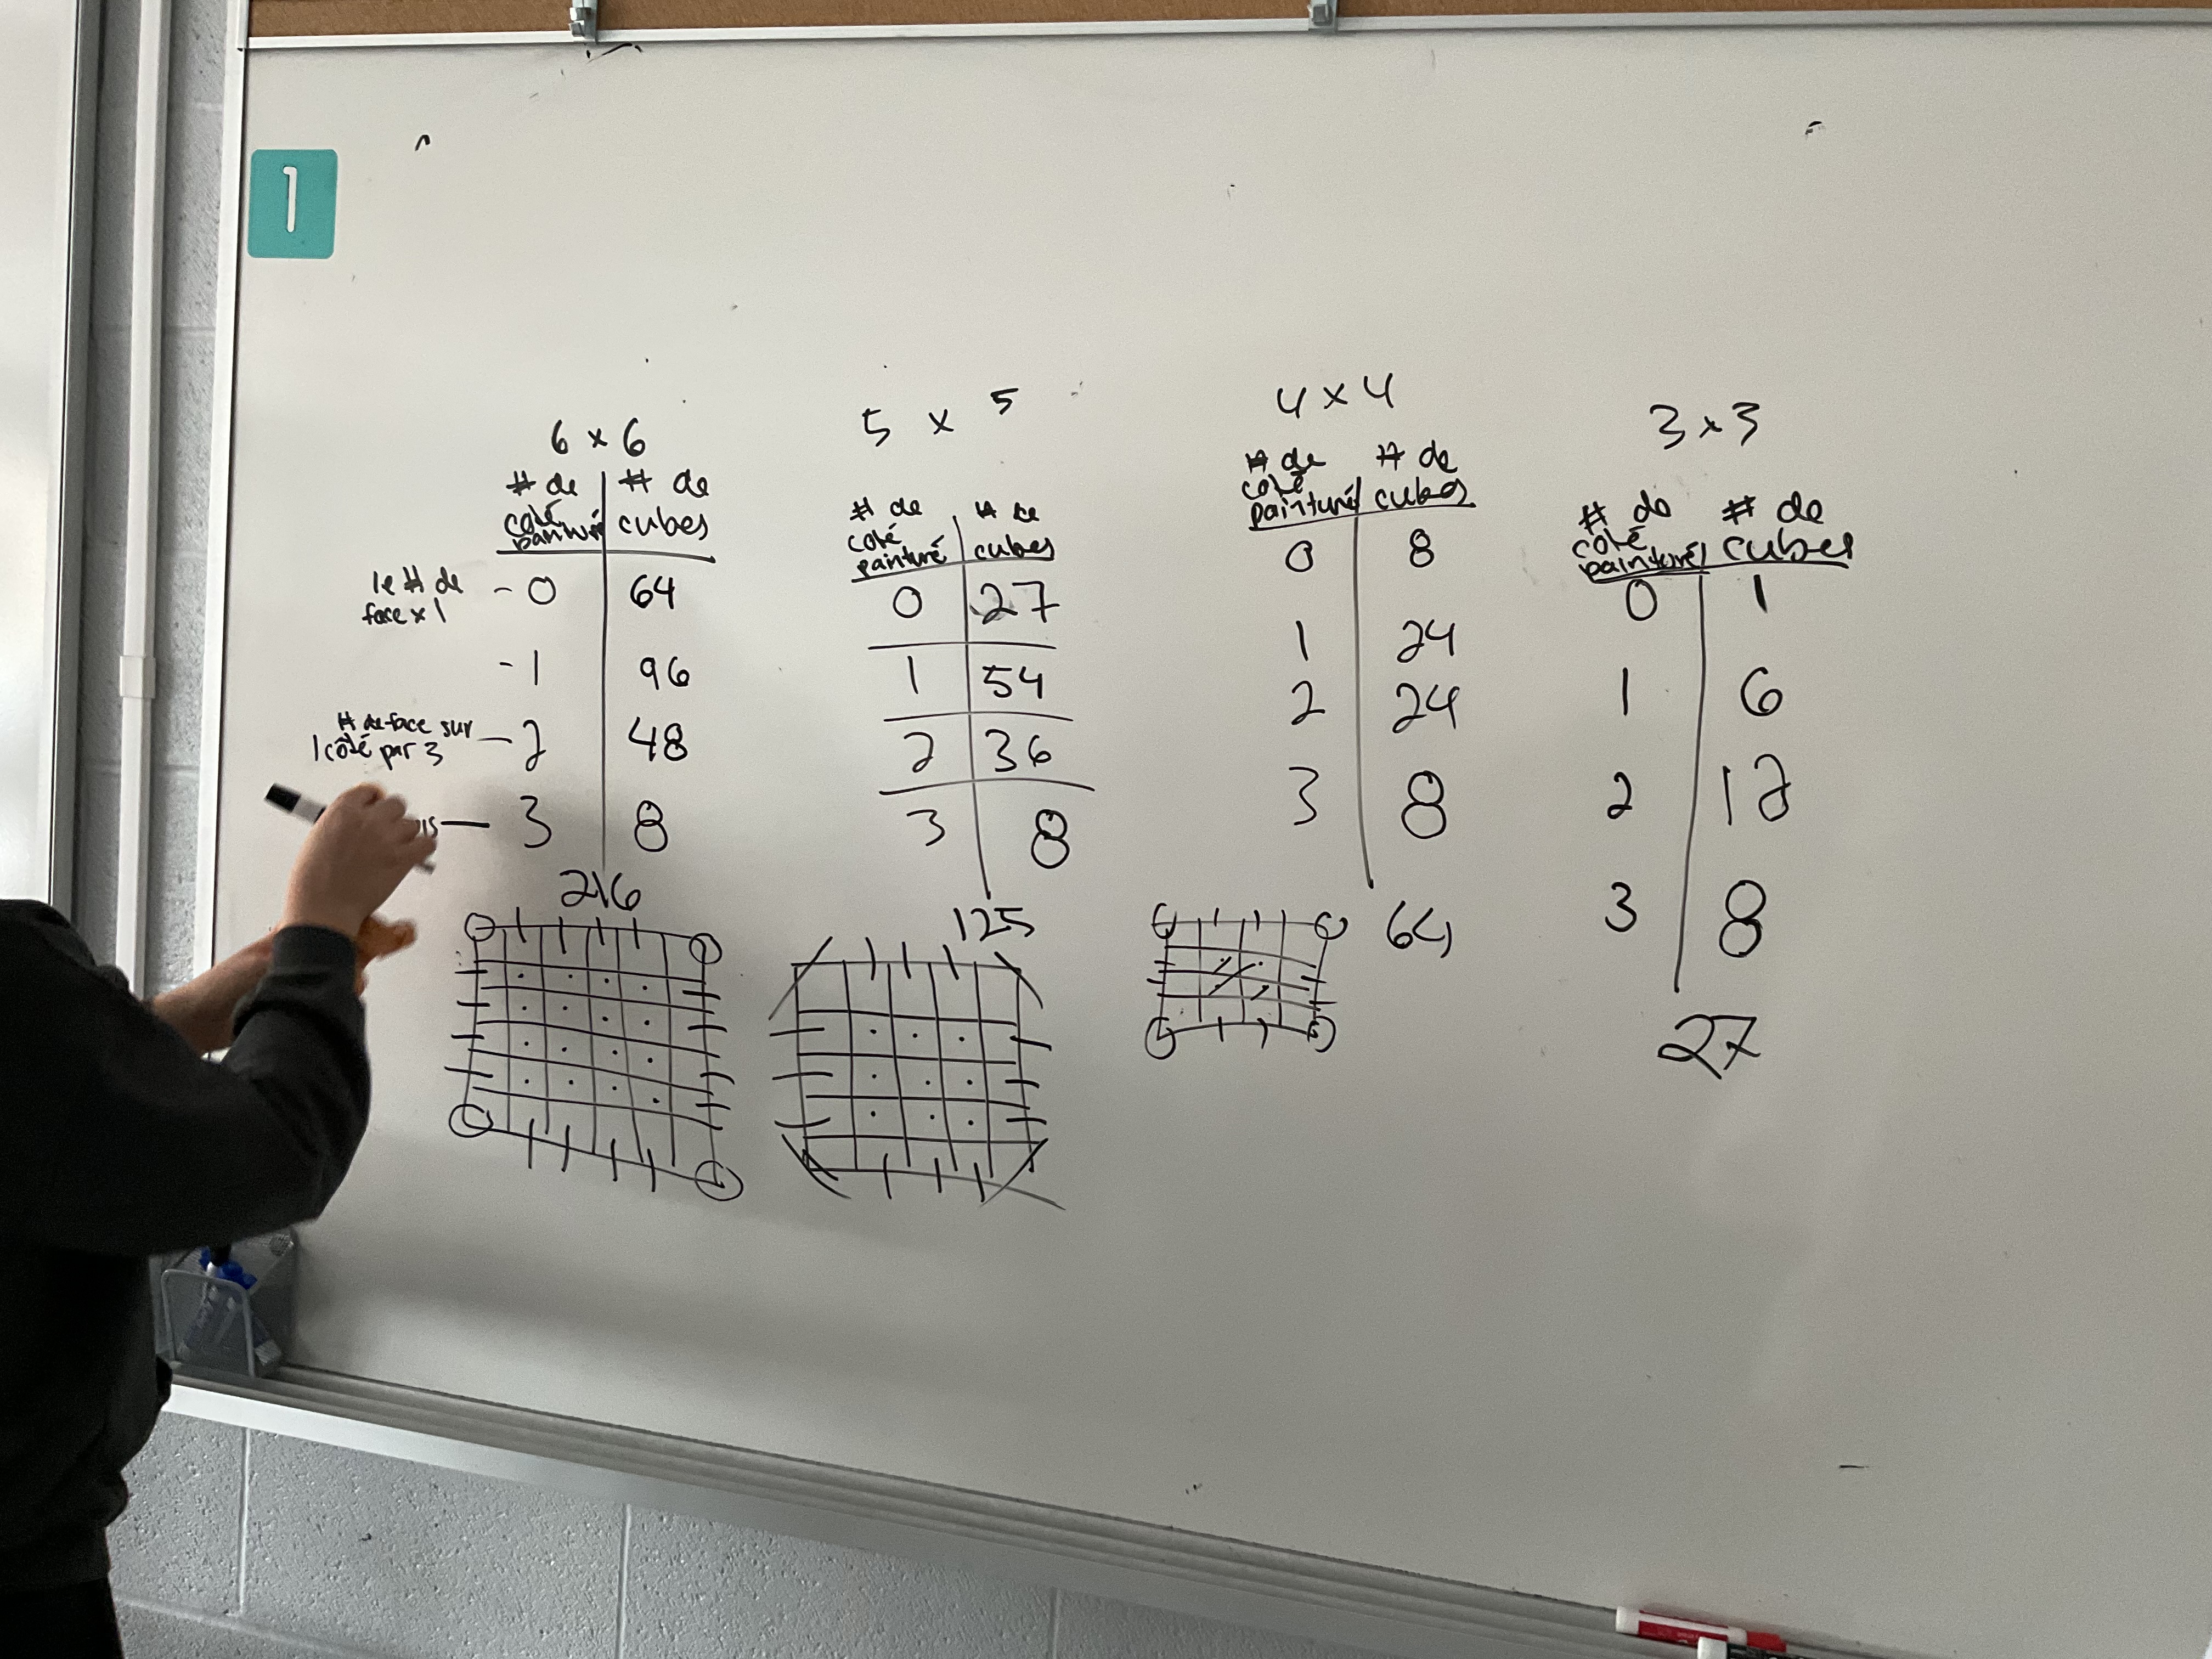 1
6 x 6
# de coté painturé | # de cubes
le # de face x 1 - 0 | 64
- 1 | 96
# de face sur 1 coté par 3 - 2 | 48
— 3 | 8
216
5 x 5
# de coté painturé | # de cubes
0 | 27
1 | 54
2 | 36
3 | 8
125
4 x 4
# de coté painturé | # de cubes
0 | 8
1 | 24
2 | 24
3 | 8
64
3 x 3
# de coté painturé | # de cubes
0 | 1
1 | 6
2 | 12
3 | 8
27